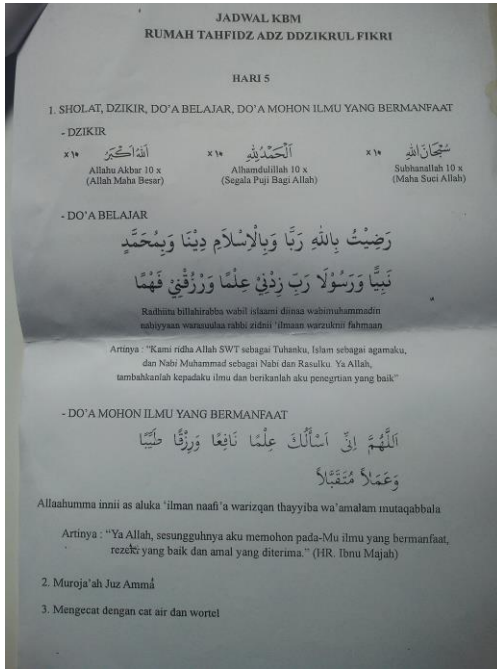 JADWAL KBM
RUMAH TAHFIDZ ADZ DDZIKRUL FIKRI
HARI 5
1. SHOLAT, DZIKIR, DO'A BELAJAR, DO'A MOHON ILMU YANG BERMANFAAT
- DZIKIR
سُبْحَانَ اللهِ ×١٠ اَلْحَمْدُ لِلهِ ×١٠ اَللهُ اَكْبَرُ ×١٠
Allahu Akbar 10 x Alhamdulillah 10 x Subhanallah 10 x
(Allah Maha Besar) (Segala Puji Bagi Allah) (Maha Suci Allah)
- DO'A BELAJAR
رَضِيْتُ بِاللهِ رَبًّا وَبِالْاِسْلَامِ دِيْنًا وَبِمُحَمَّدٍ
نَبِيًّا وَرَسُوْلَا رَبِّ زِدْنِيْ عِلْمًا وَرْزُقْنِيْ فَهْمًا
Radhiita billahirabba wabil islaami diinaa wabimuhammadin
nabiyyaan warasuulaa rabbi zidnii 'ilmaan warzuknii fahmaan
Artinya : "Kami ridha Allah SWT sebagai Tuhanku, Islam sebagai agamaku,
dan Nabi Muhammad sebagai Nabi dan Rasulku. Ya Allah,
tambahkanlah kepadaku ilmu dan berikanlah aku penegrtian yang baik"
- DO'A MOHON ILMU YANG BERMANFAAT
اَللَّهُمَّ اِنِّى اَسْأَلُكَ عِلْمًا نَافِعًا وَرِزْقًا طَيِّبًا
وَعَمَلاً مُتَقَبَّلاً
Allaahumma innii as aluka 'ilman naafi'a warizqan thayyiba wa'amalam mutaqabbala
Artinya : "Ya Allah, sesungguhnya aku memohon pada-Mu ilmu yang bermanfaat,
rezeki yang baik dan amal yang diterima." (HR. Ibnu Majah)
2. Muroja'ah Juz Amma
3. Mengecat dengan cat air dan wortel